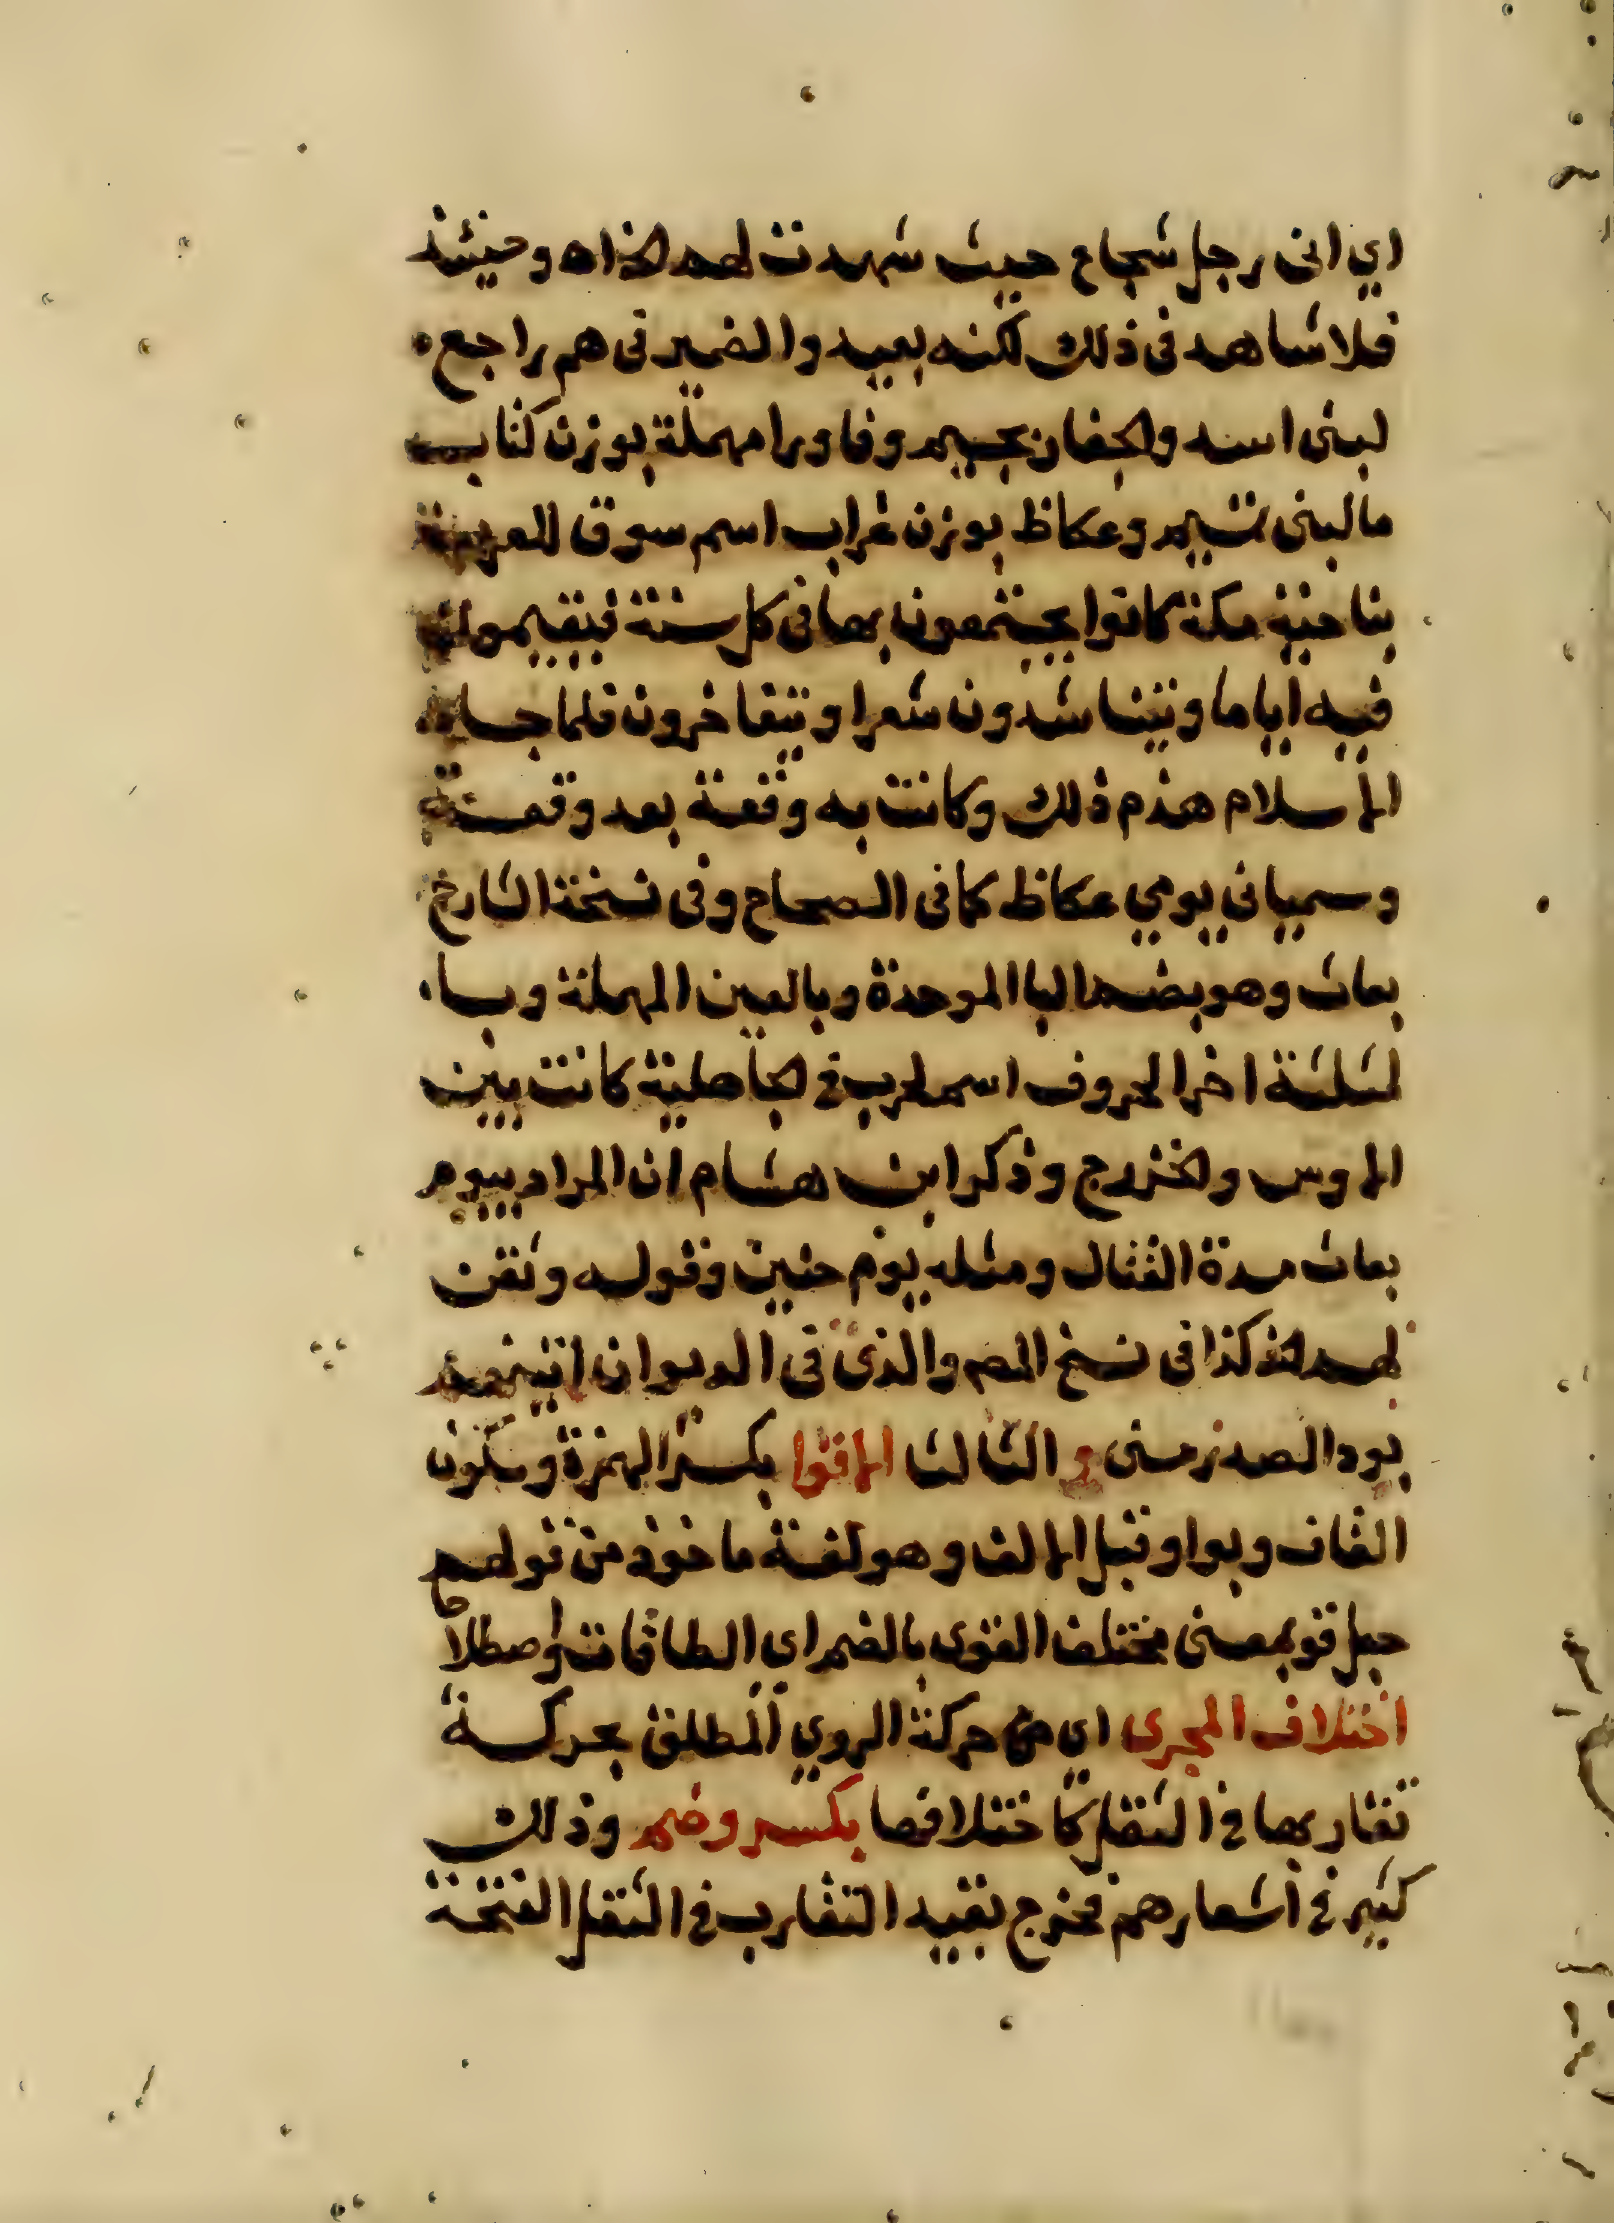 اي اني رجل شجاع حيث شهدت لهم الخ اه وحينئذ
فلا شاهد في ذلك لكنه بعيد والضمير في هم راجع
لبني اسد والجفار بجيم وفا ورا مهملة بوزن كتاب
ما لبني تميم وعكاظ بوزن غراب اسم سوق للعرب
بناحية مكة كانوا يجتمعون بها في كل سنة فيقيمون
فيه اياما ويتناشدون شعرا ويتفاخرون فلما جا
الاسلام هدم ذلك وكانت به وقعة بعد وقعة
وسميا في يومي عكاظ كما في الصحاح وفي نسخة الشارح
بعاث وهو بضم البا الموحدة وبالعين المهملة وبا
لمثلثة اخر الحروف اسم لحرب في الجاهلية كانت بين
الاوس والخزرج وذكر ابن هشام ان المراد بيوم
بعاث مدة القتال ومثله يوم حنين وقوله
لهم الخ كذا في نسخ المص والذي في الديوان
الصدر مني و الثالث الاقوا بكسر الهمزة وسكون
القاف وبواو قبل الالف وهو لغة ماخوذ من قولهم
حبل قو بمعنى مختلف القوى بالضم اي الطاقات واصطلاحا
اختلاف المجرى اي هي حركة الروي المطلق بحركة
تقاربها في الثقل كاختلافها بكسر وضم وذلك
كثير في اشعارهم فخرج بقيد التقارب في الثقل الفتحة